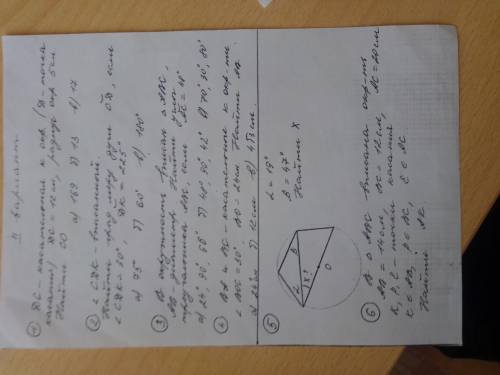 II вариант
① DC - касательная к окр. (D - точка
касания) DC = 12 см, радиус окр 5 см
Найти CO
а) 169 б) 13 в) 17
② ∠CDK - вписанный
Найти град меру дуги CD, если
∠CDK = 50°, DK = 225°
а) 35° б) 60° в) 180°
③ В окружность вписан △ABC,
AB - диаметр. Найти углы
треугольника ABC, если
а) 24°, 90°, 66° б) 48°, 90°, 42°
④ BA и BC - касательные к окр-ти.
Найти AB.
б) 12 см в) 4√3 см.
⑤ ∠ = 19°
β = 47°
Найти X
O
⑥ В △ABC вписана окр-ть
AB = 14 см, BC = 12 см, AC = 20 см
K, P, E - точки касания
K ∈ AB, P ∈ BC, E ∈ AC
Найти